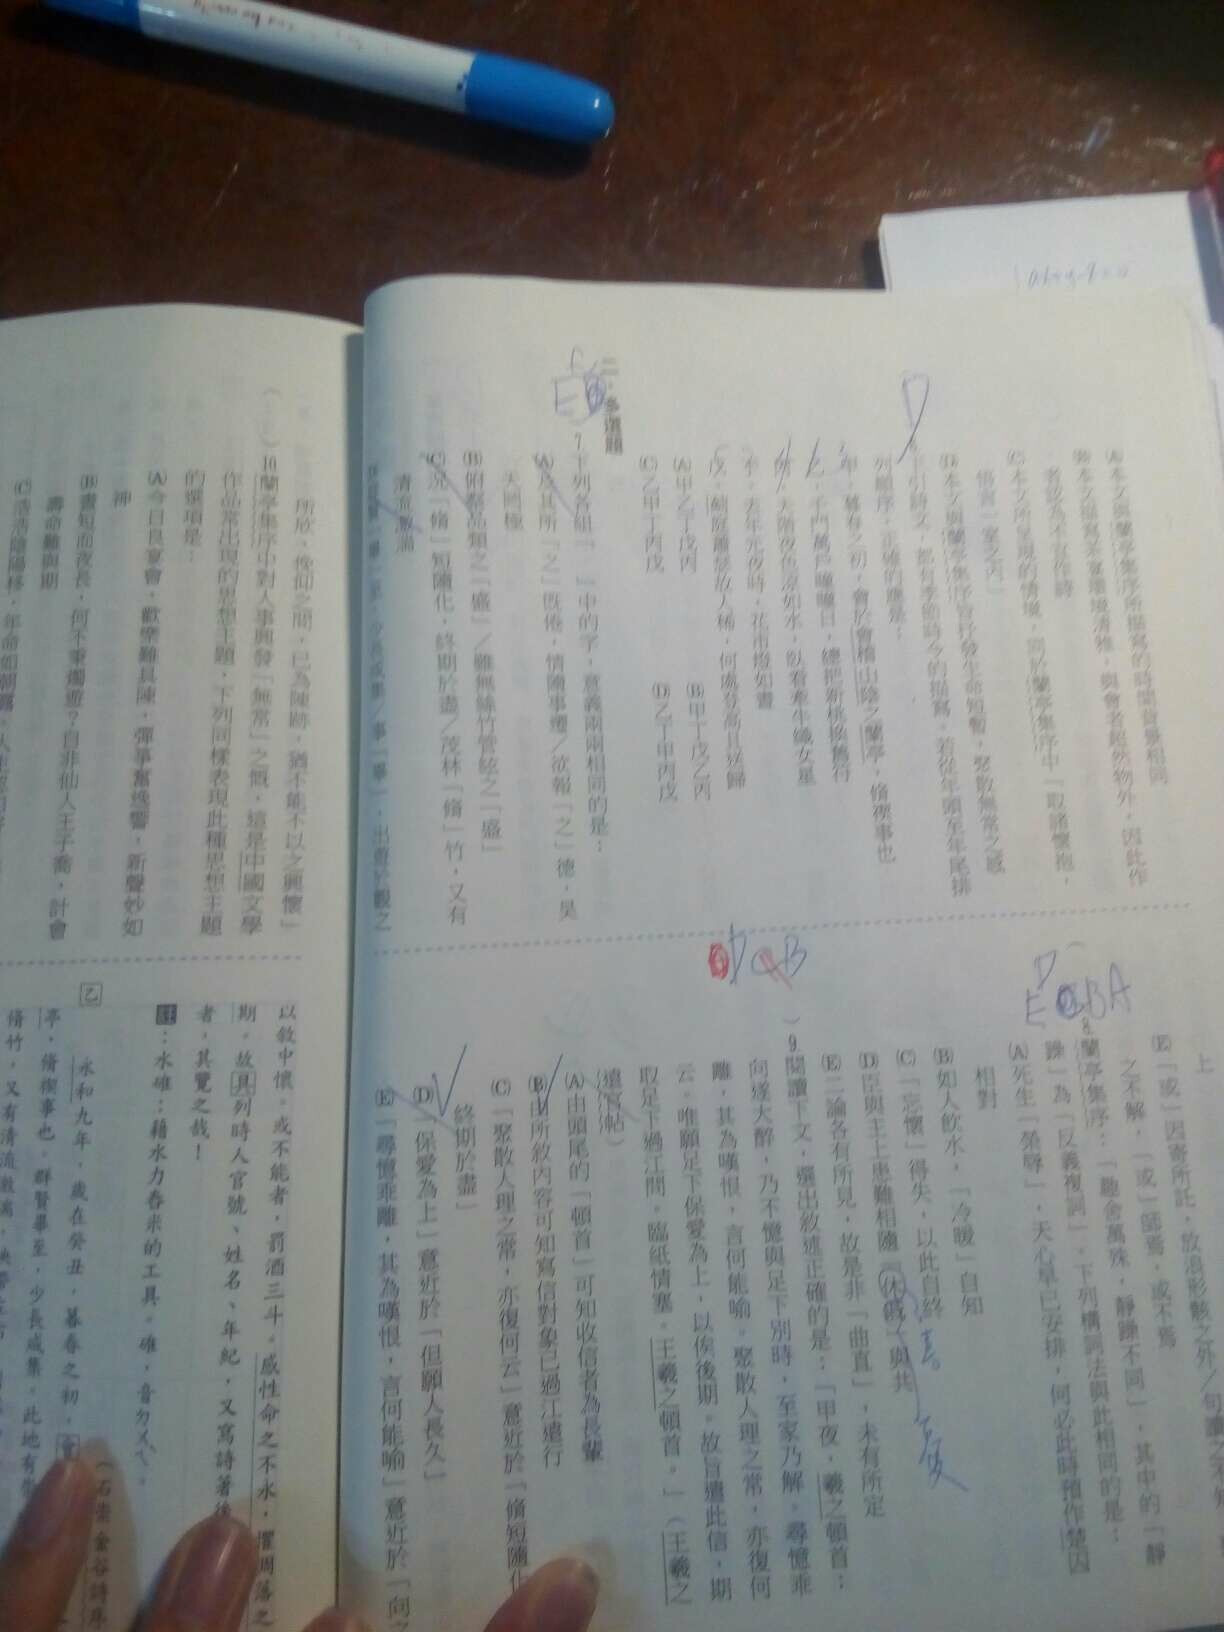 (A)本文與蘭亭集序所描寫的時間背景相同
者認為不宜作詩
(C)本文所呈現的情境，同於蘭亭集序中「取諸懷抱，
悟言一室之內」
(D)本文與蘭亭集序皆抒發生命短暫，聚散無常之感
D
下引詩文，都有季節時令的描寫，若從年頭至年尾排
列順序，正確的應是：
甲、暮春之初，會於會稽山陰之蘭亭，脩禊事也
乙、千門萬戶曈曈日，總把新桃換舊符
丙、天階夜色涼如水，臥看牽牛織女星
丁、去年元夜時，花市燈如晝
(A)甲乙丁戊丙
(B)甲丁戊乙丙
(C)乙甲丁丙戊
(D)乙丁甲丙戊
二、多選題
7.下列各組「」中的字，意義兩兩相同的是：
(A)及其所「之」既倦，情隨事遷／欲報「之」德，昊
天罔極
(B)俯察品類之「盛」／雖無絲竹管絃之「盛」
(C)況「脩」短隨化，終期於盡／茂林「脩」竹，又有
清流激湍
上
(E)「或」因寄所託，放浪形骸之外／句讀之不知
之不解，「或」師焉，或不焉
8.蘭亭集序：「趣舍萬殊，靜躁不同」，其中的「靜
躁」為「反義複詞」。下列構詞法與此相同的是：
(A)死生「榮辱」，天心早已安排，何必此時預作楚囚
相對
(B)如人飲水，「冷暖」自知
(C)「忘懷」得失，以此自終
(D)臣與主上患難相隨「休戚」與共
(E)二論各有所見，故是非「曲直」，未有所定
9.閱讀下文，選出敘述正確的是：「甲夜，羲之頓首：
向遂大醉，乃不憶與足下別時，至家乃解。尋憶乖
離，其為嘆恨，言何能喻。聚散人理之常，亦復何
云。唯願足下保愛為上，以俟後期。故旨遣此信，期
取足下過江問。臨紙情塞。王羲之頓首。」（王羲之
遠宦帖）
(A)由頭尾的「頓首」可知收信者為長輩
(B)由所敘內容可知寫信對象已過江遠行
(C)「聚散人理之常，亦復何云」意近於「脩短隨化
終期於盡」
(D)「保愛為上」意近於「但願人長久」
(E)「尋憶乖離，其為嘆恨，言何能喻」意近於「向之
所欣，俛仰之間，已為陳跡，猶不能不以之興懷」
10.蘭亭集序中對人事興發「無常」之慨，這是中國文學
作品常出現的思想主題，下列同樣表現此種思想主題
的選項是：
(A)今日良宴會，歡樂難具陳，彈箏奮逸響，新聲妙如
神
(B)晝短而夜長，何不秉燭遊？自非仙人王子喬，計會
壽命難與期
(C)浩浩陰陽移，年命如朝露
以敘中懷。或不能者，罰酒三斗。感性命之不永，懼凋落之
期。故具列時人官號、姓名、年紀，又寫詩著後
者，其覽之哉！
註：水碓：藉水力舂米的工具。碓，音ㄉㄨㄟˋ。
（石崇金谷詩序
乙
永和九年，歲在癸丑，暮春之初，會
亭，脩禊事也。群賢畢至，少長咸集。此地有崇
脩竹，又有清流激湍，映帶左右